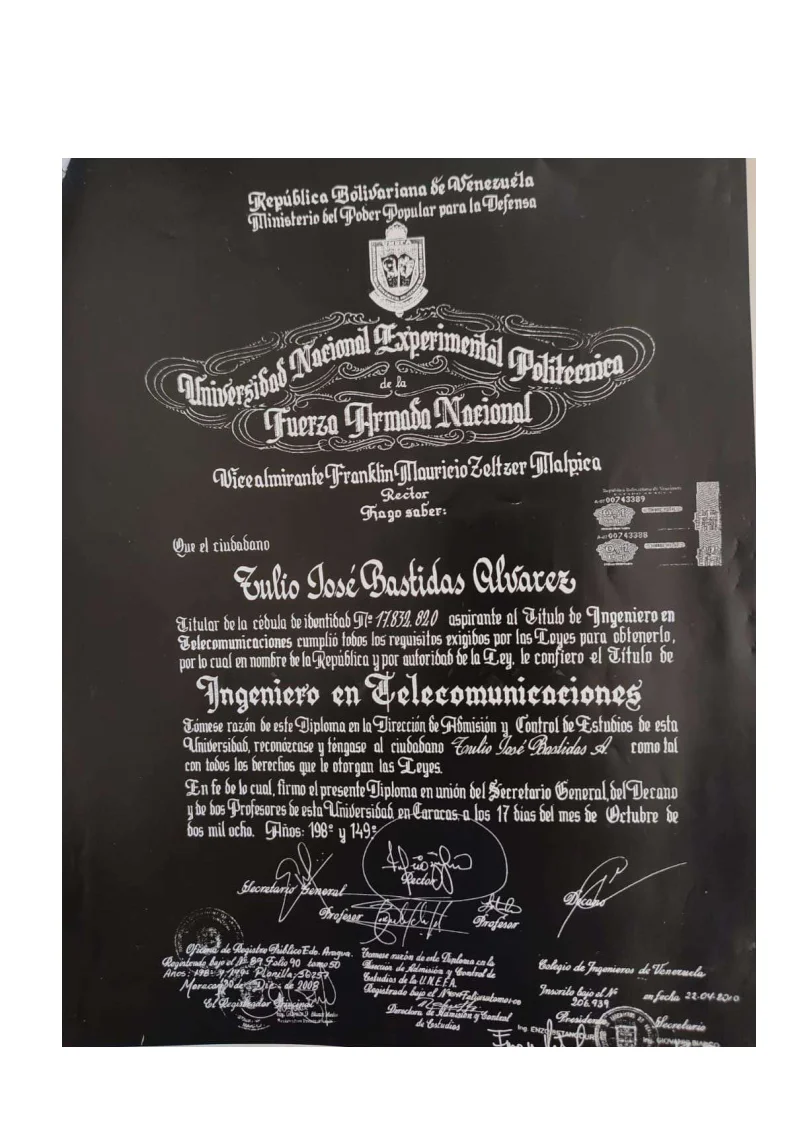 República Bolivariana de Venezuela
Ministerio del Poder Popular para la Defensa
Universidad Nacional Experimental Politécnica
de la
Fuerza Armada Nacional
Vicealmirante Franklin Mauricio Zeltzer Malpica
Rector
Hago saber:
00743389
00743388
Que el ciudadano
Tulio José Bastidas Alvarez
Titular de la cédula de identidad Nº 17.832.820 aspirante al Título de Ingeniero en
Telecomunicaciones cumplió todos los requisitos exigidos por las Leyes para obtenerlo,
por lo cual en nombre de la República y por autoridad de la Ley, le confiero el Título de
Ingeniero en Telecomunicaciones
Tómese razón de este Diploma en la Dirección de Admisión y Control de Estudios de esta
Universidad, reconózcase y téngase al ciudadano Tulio José Bastidas A como tal
con todos los derechos que le otorgan las Leyes.
En fe de lo cual, firmo el presente Diploma en unión del Secretario General, del Decano
y de dos Profesores de esta Universidad, en Caracas a los 17 dias del mes de Octubre de
dos mil ocho. Años: 198º y 149º
Secretario General
Rector
Decano
Profesor
Profesor
Oficina de Registro Público Edo. Aragua.
Registrado bajo el Nº 89 Folio 90 tomo 50
Años: 198º y 149º Planilla
Maracay de Dic. de 2008
El Registrador Principal
Tómese razón de este Diploma en la
Dirección de Admisión y Control de
Estudios de la U.N.E.F.A.
Registrado bajo el Nº
Directora de Admisión y Control
de Estudios
Colegio de Ingenieros de Venezuela
Inscrito bajo el Nº en fecha 22-04-2010
206.939
Presidente Secretario
Ing. ENZO BETANCOURT
Ing. GIOVANNI BIANCO